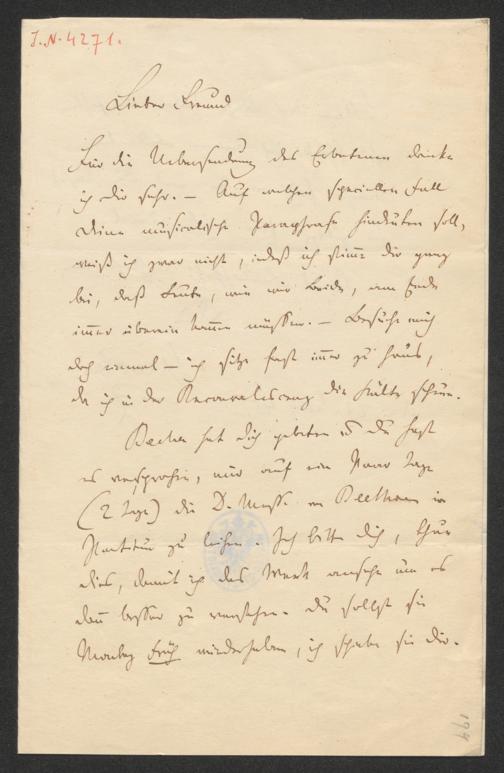 J.N. 4271.
Lieber Freund
Für die Uebersendung des Erbetenen danke
ich dir sehr. — Auf welchen speciellen Fall
deine musicalische Paragraphe hindeuten soll,
weiß ich zwar nicht, indeß ich stimme dir ganz
bei, daß Leute, wie wir Beide, am Ende
immer überein kommen müssen. — Besuche mich
doch einmal — ich sitze fast immer zu Haus,
da ich in der Reconvalescenz die Kälte scheue.
Becher hat dich gebeten u du hast
es versprochen, mir auf ein Paar Tage
(2 Tage) die D. Messe von Beethoven in
Partitur zu leihen. Ich bitte dich, thue
dies, damit ich das Werk ansehe um es
dann besser zu verstehen. Du sollst sie
Montag früh wiederhaben, ich schicke sie dir.
194